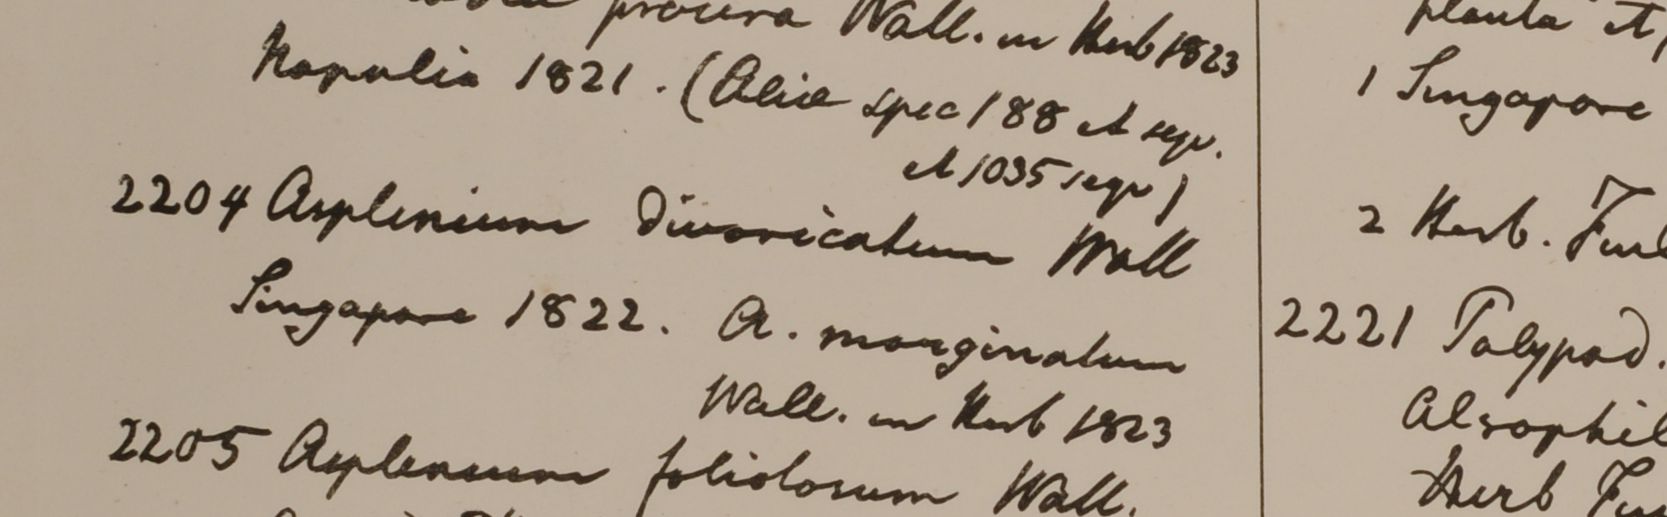 procera Wall. in Herb 1823
Napalia 1821. (Aliæ spec 188 et seqv.
et 1035 seqv)
2204 Asplenium divaricatum Wall
Singapore 1822. A. marginatum
Wall. in Herb 1823
2205 Asplenium foliolosum Wall.
planta et
1 Singapore
2 Herb.
2221 Polypod.
Alsophil
Herb